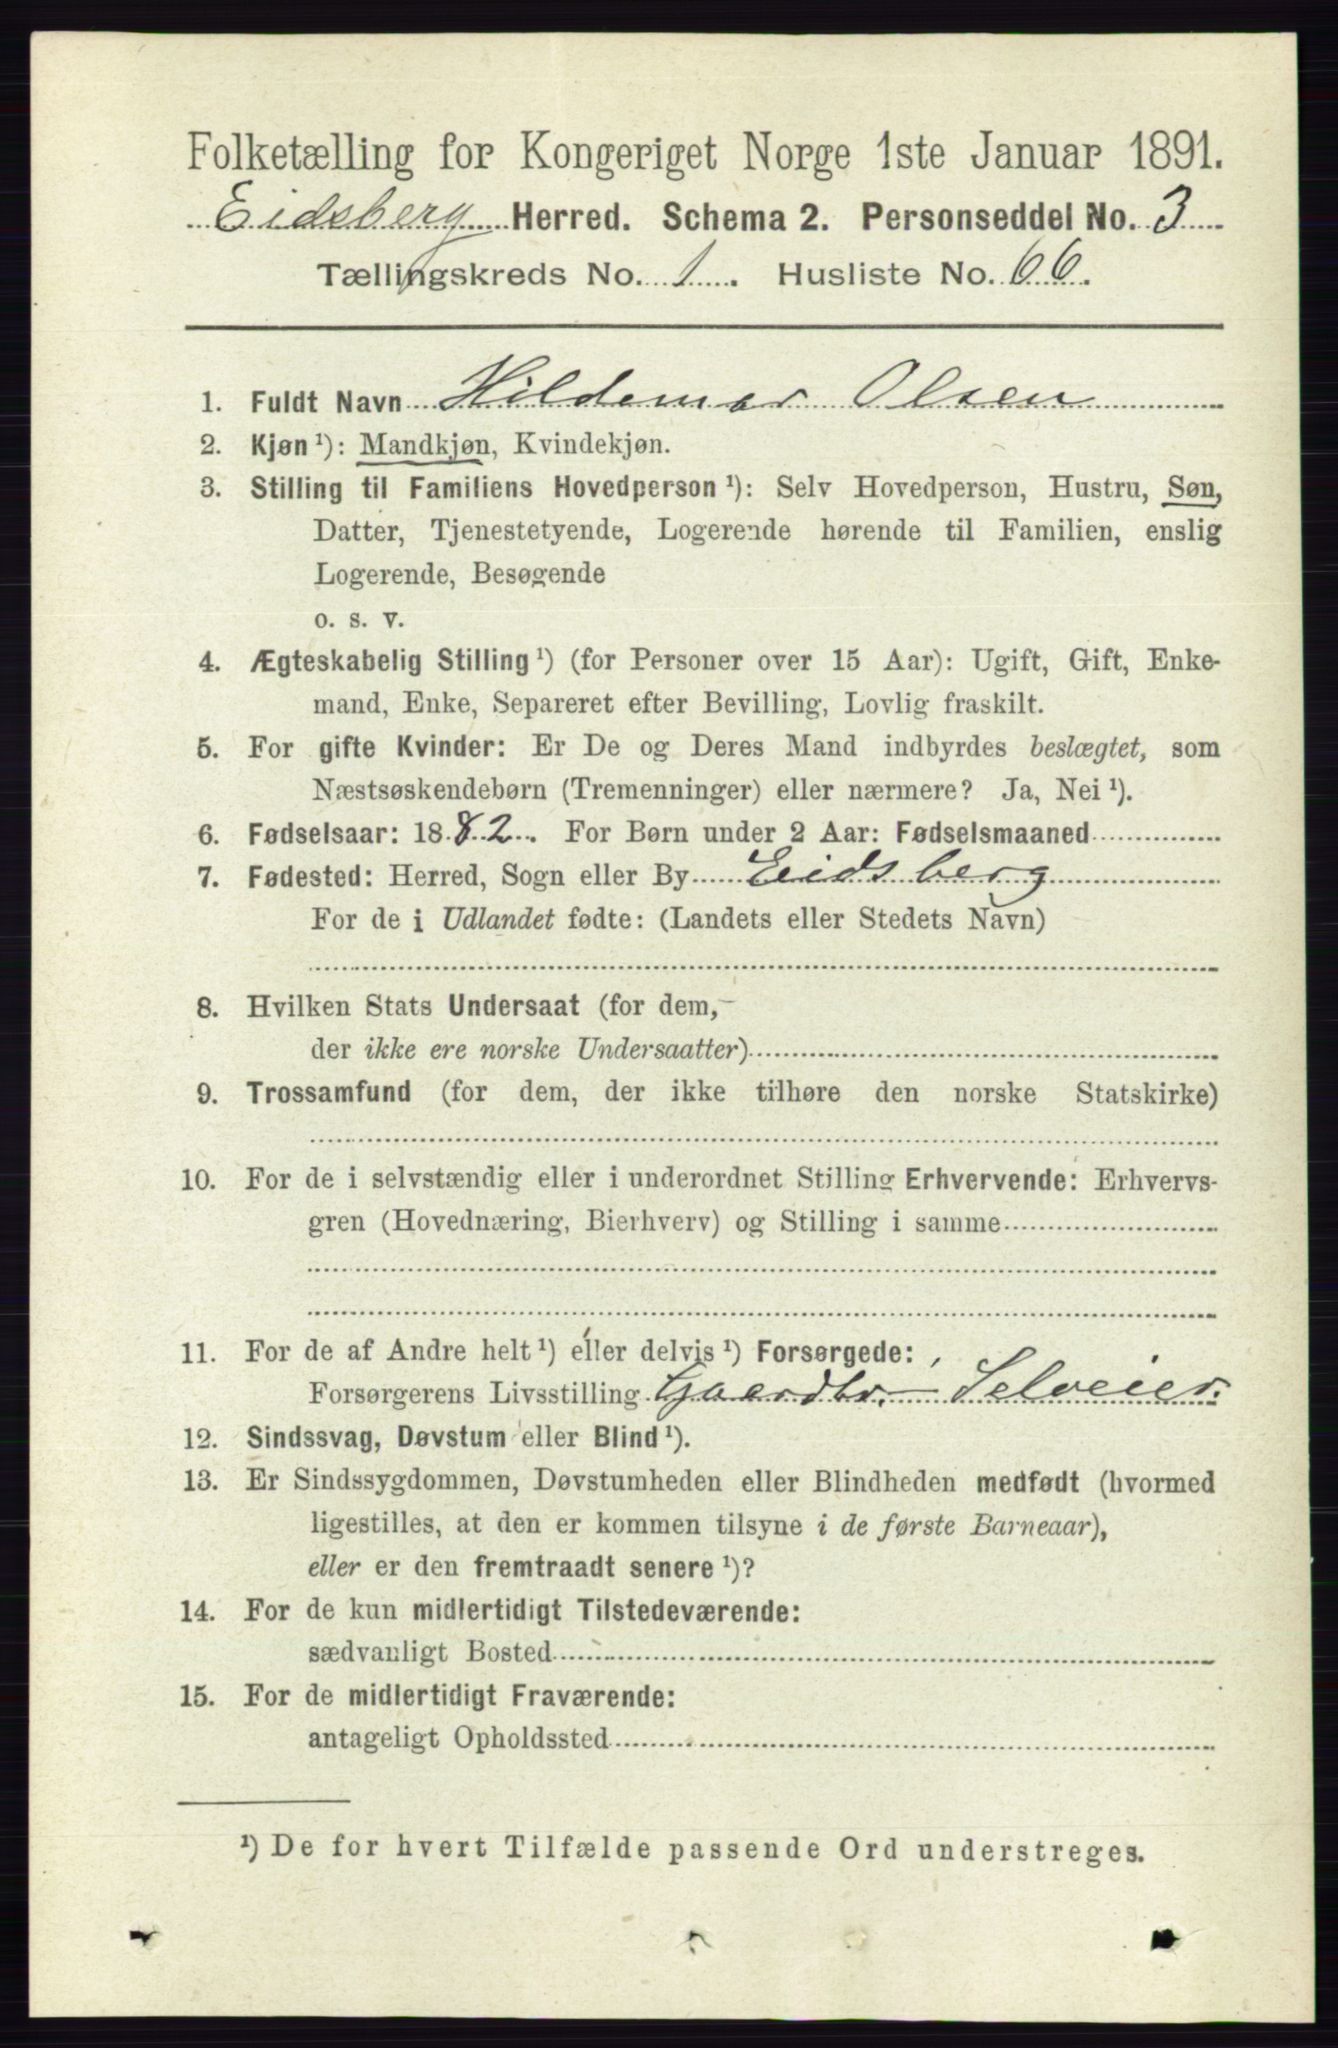 Folketælling for Kongeriget Norge 1ste Januar 1891.
Eidsberg Herred. Schema 2. Personseddel No. 3
Tællingskreds No. 1. Husliste No. 66.
1. Fuldt Navn Hildemar Olsen
2. Kjøn ¹): Mandkjøn, Kvindekjøn.
3. Stilling til Familiens Hovedperson ¹): Selv Hovedperson, Hustru, Søn,
Datter, Tjenestetyende, Logerende hørende til Familien, enslig
Logerende, Besøgende
o. s. v.
4. Ægteskabelig Stilling ¹) (for Personer over 15 Aar): Ugift, Gift, Enke-
mand, Enke, Separeret efter Bevilling, Lovlig fraskilt.
5. For gifte Kvinder: Er De og Deres Mand indbyrdes beslægtet, som
Næstsøskendebørn (Tremenninger) eller nærmere? Ja, Nei ¹).
6. Fødselsaar: 1882. For Børn under 2 Aar: Fødselsmaaned
7. Fødested: Herred, Sogn eller By Eidsberg
For de i Udlandet fødte: (Landets eller Stedets Navn)
8. Hvilken Stats Undersaat (for dem,
der ikke ere norske Undersaatter)
9. Trossamfund (for dem, der ikke tilhøre den norske Statskirke)
10. For de i selvstændig eller i underordnet Stilling Erhvervende: Erhvervs-
gren (Hovednæring, Bierhverv) og Stilling i samme
11. For de af Andre helt ¹) eller delvis ¹) Forsørgede:
Forsørgerens Livsstilling Gaardbr. Selveier.
12. Sindssvag, Døvstum eller Blind ¹).
13. Er Sindssygdommen, Døvstumheden eller Blindheden medfødt (hvormed
ligestilles, at den er kommen tilsyne i de første Barneaar),
eller er den fremtraadt senere ¹)?
14. For de kun midlertidigt Tilstedeværende:
sædvanligt Bosted
15. For de midlertidigt Fraværende:
antageligt Opholdssted
¹) De for hvert Tilfælde passende Ord understreges.